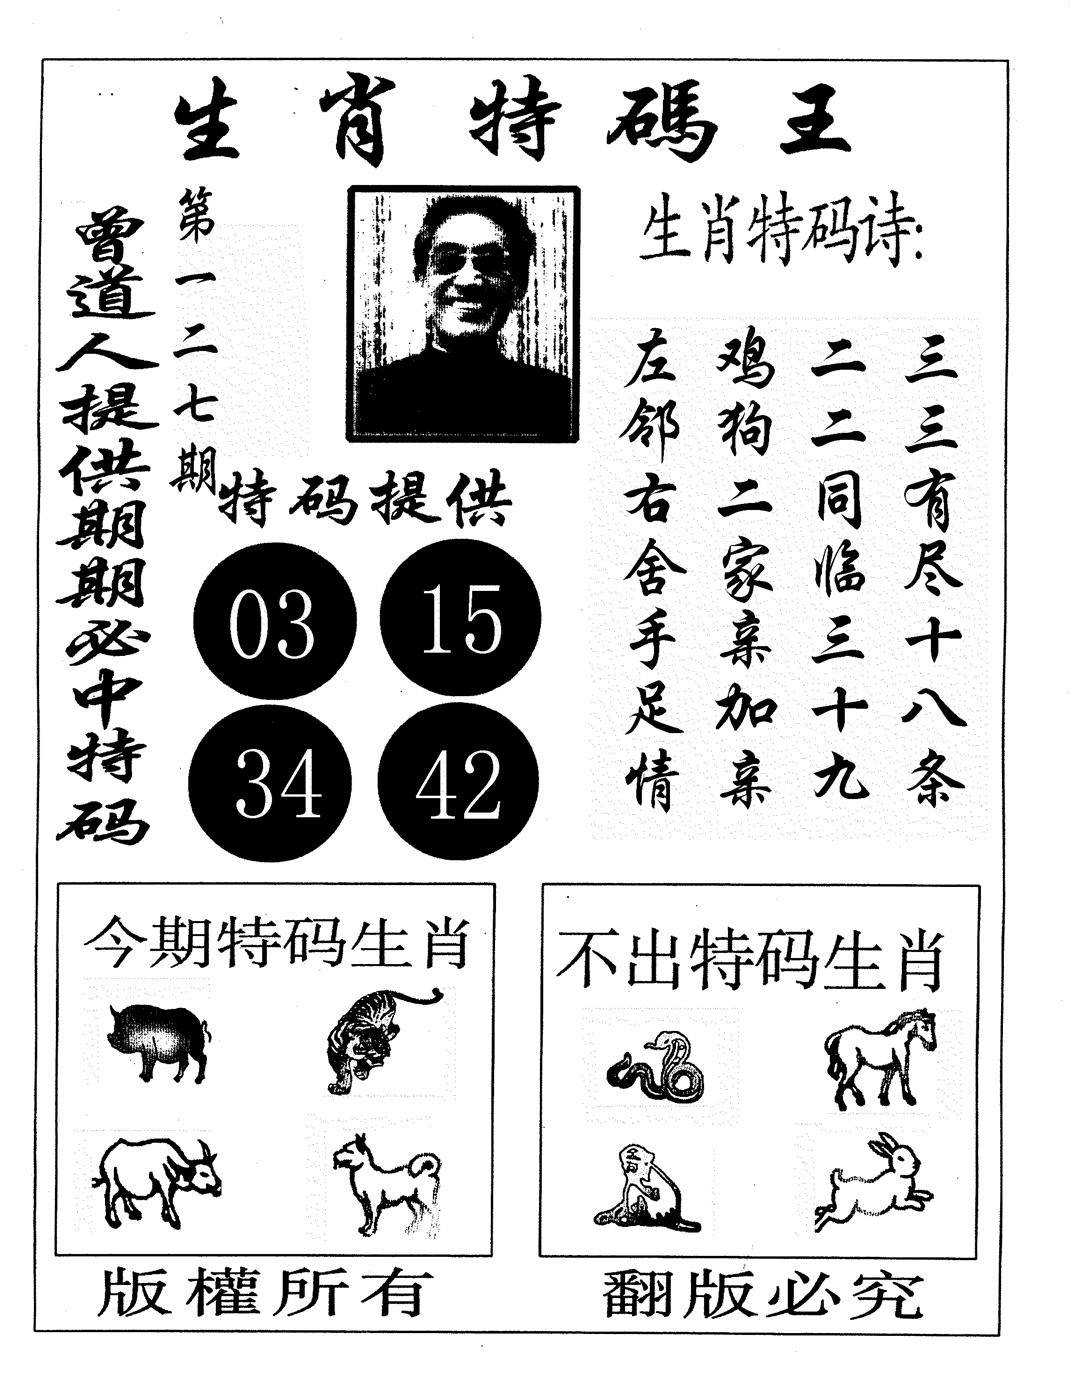 生肖特碼王
曾道人提供期期必中特码
第一二七期
生肖特码诗:
三三有尽十八条
二二同临三十九
鸡狗二家亲加亲
左邻右舍手足情
特码提供
03 15
34 42
今期特码生肖
不出特码生肖
版權所有
翻版必究